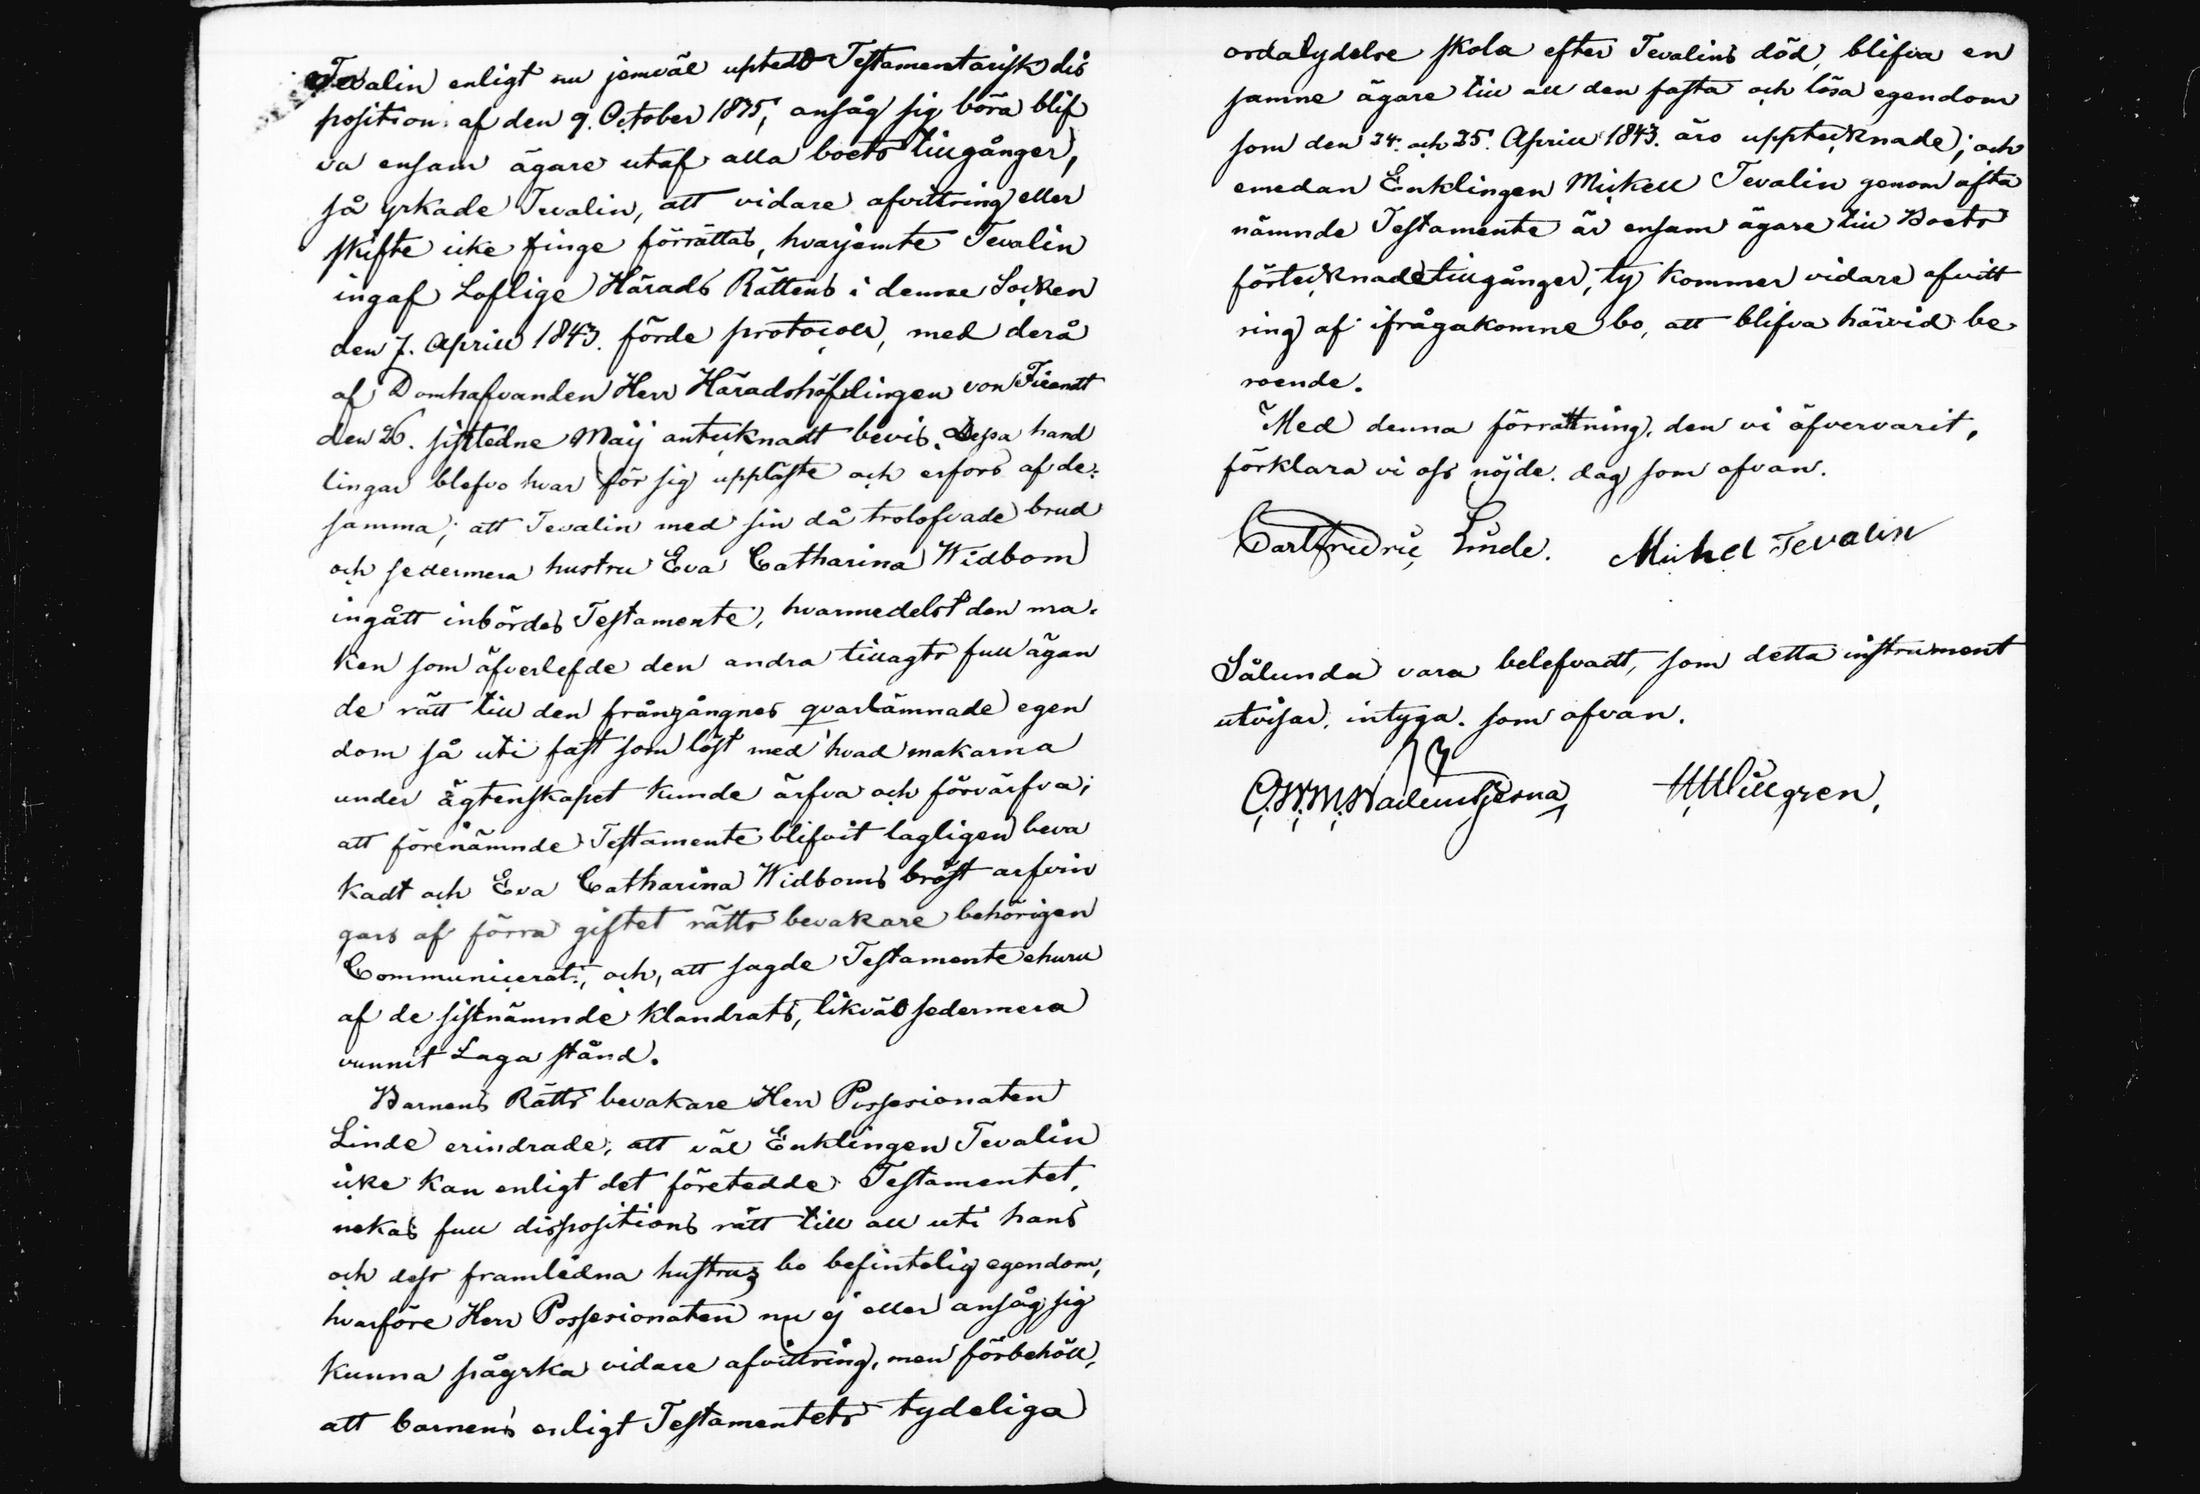 Tevalin enligt nu jemväl uptedd Testamentarisk dis
position af den 9. October 1875, ansåg sig böra blif
va ensam ägare utaf alla boets tillgånger,
så yrkade Tevalin, att vidare afvittring eller
skifte icke finge förrättas, hvarjemte Tevalin
ingaf Loflige Härads Rättens i denne Socken
den 7. Aprill 1843. förde protocoll, med derå
af Domhafvanden Herr Häradshöfdingen von Fieandt
den 26. sistledne Maij antecknadt bevis. Dessa hand
lingar blefvo hvar för sig uppläste och erfors af de-
samma; att Tevalin med sin då trolofvade brud
och sedermera hustru Eva Catharina Widbom
ingått inbördes Testamente, hvarmedelst den ma-
ken som äfverlefde den andra tillagts full ägan
de rätt till den frångångnes qvarlämnade egen
dom så uti fast som löst med hvad makarna
under ägtenskapet kunde ärfva och förvärfva;
att förenämnde Testamente blifvit lagligen beva
kadt och Eva Catharina Widboms bröst arfvin
gars af förra giftet rätts bevakare behörigen
Communicerat:, och, att sagde Testamente ehuru
af de sistnämnde klandrats, likväl sedermera
vunnit Laga stånd.
Barnens Rätts bevakare Herr Possesionaten
Linde erindrade; att väl Enklingen Tevalin
icke kan enligt det företedde Testamentet,
nekas full dispositions rätt till all uti hans
och dess framledna hustrus bo befintelig egendom,
hvarföre Herr Possesionaten nu ej eller ansåg sig
kunna påyrka vidare afvittring, men förbehöll,
att barnens enligt Testamentets tydeliga
ordalydelse skola efter Tevalins död, blifva en
samne ägare till all den fasta och lösa egendom
som den 24. och 25. Aprill 1843. äro upptecknade; och
emedan Enklingen Mickell Tevalin genom ofta
nämnde Testamente är ensam ägare till Boets
förtecknade tillgånger, ty kommer vidare afvitt
ring af ifrågakomne bo, att blifva härvid be-
roende.
Med denna förrättning, den vi äfvervarit,
förklara vi oss nöjde. dag som ofvan.
Carl Fredric Linde. Michel Tevalin
Sålunda vara belefvadt, som detta instrument
utvisar, intyga. som ofvan.